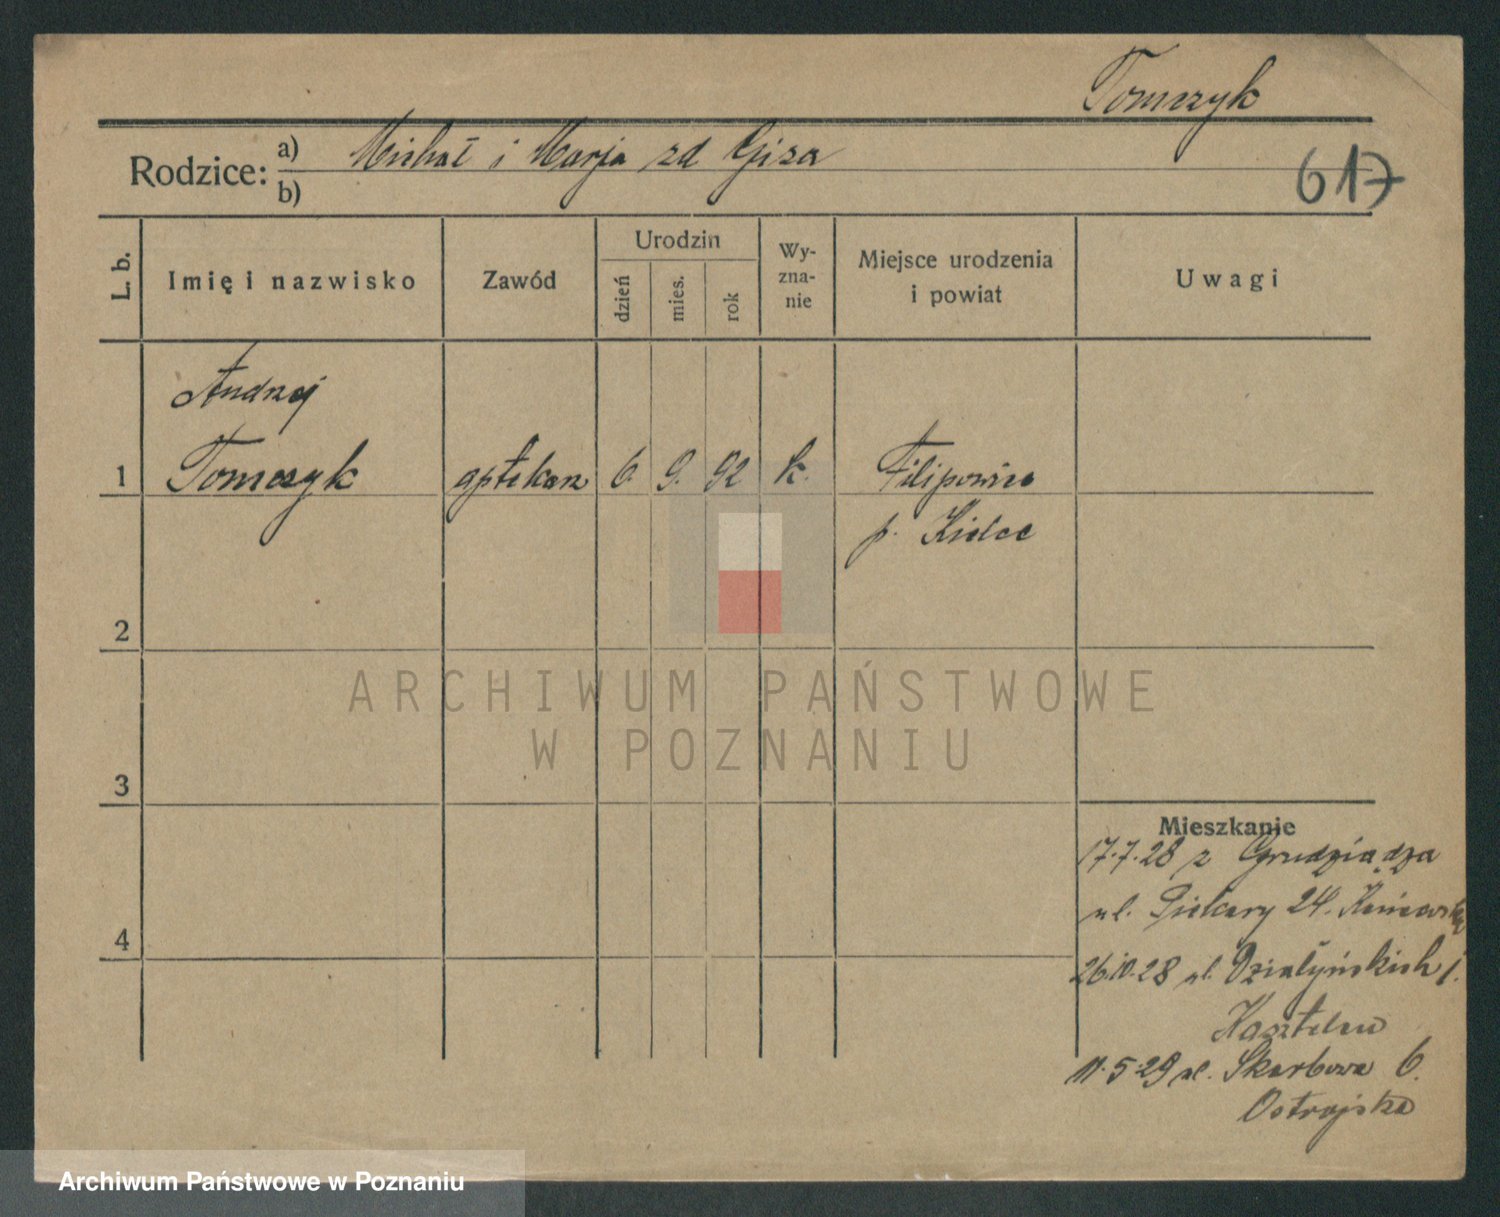 Tomczyk
Rodzice: a) Michał i Marja zd Giza
b)
617
L. b.
Imię i nazwisko
Zawód
Urodzin
dzień
mies.
rok
Wy-
zna-
nie
Miejsce urodzenia
i powiat
Uwagi
Andrzej
1 Tomczyk aptekarz 6. 9. 92 k. Filipowice
p. Kielce
2
3
4
ARCHIWUM PAŃSTWOWE
W POZNANIU
Mieszkanie
17.7.28 z Grudziądza
ul. Piekary 24.
26.10.28 ul. Działyńskich 1.
Kasztelan
11.5.29 ul. Skarbowa 6.
Ostrojska
Archiwum Państwowe w Poznaniu